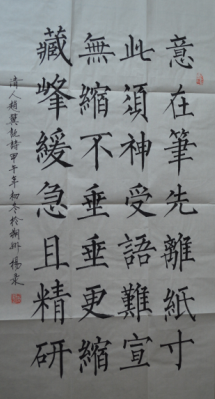 意在筆先離紙寸
此須神受語難宣
無縮不垂垂更縮
藏峰緩急且精研
清人詩甲午年初冬於楊